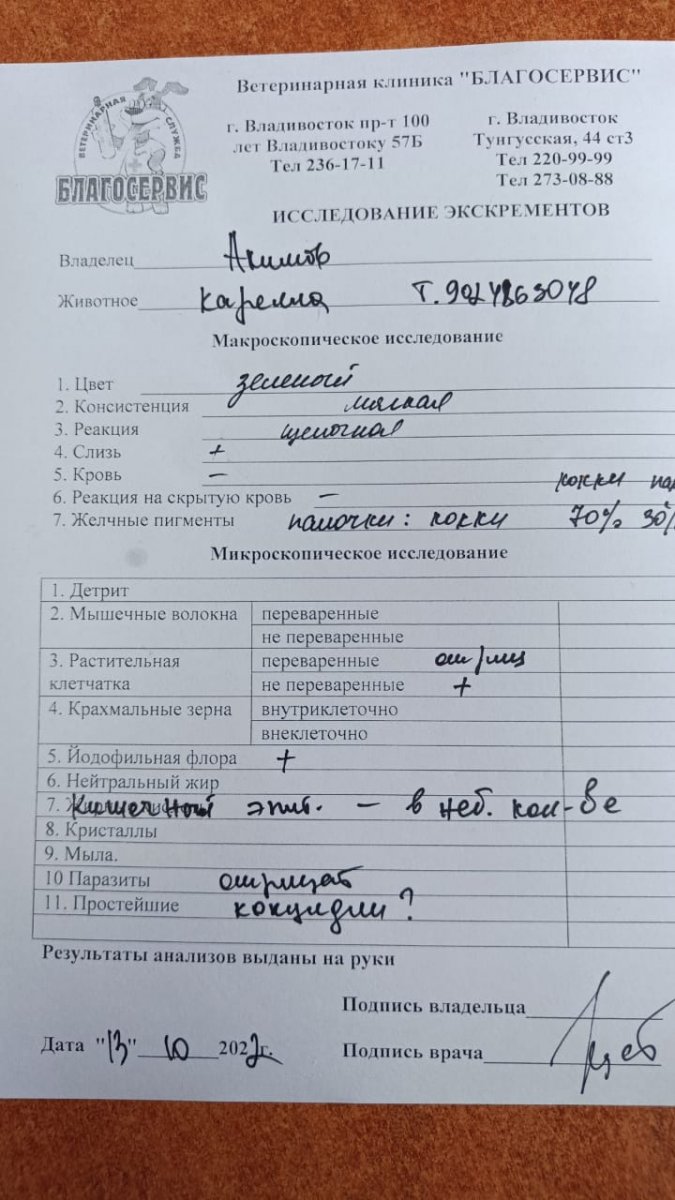 Ветеринарная клиника "БЛАГОСЕРВИС"
г. Владивосток пр-т 100
лет Владивостоку 57Б
Тел 236-17-11
г. Владивосток
Тунгусская, 44 ст3
Тел 220-99-99
Тел 273-08-88
ВЕТЕРИНАРНАЯ СЛУЖБА
БЛАГОСЕРВИС
ИССЛЕДОВАНИЕ ЭКСКРЕМЕНТОВ
Владелец Акимов
Животное Карелла Т. 9024863048
Макроскопическое исследование
1. Цвет зеленый
2. Консистенция мягкая
3. Реакция щелочная
4. Слизь +
5. Кровь –
6. Реакция на скрытую кровь – кокки
7. Желчные пигменты палочки: кокки 70% 30%
Микроскопическое исследование
1. Детрит
2. Мышечные волокна переваренные
не переваренные
3. Растительная клетчатка переваренные отриц
не переваренные +
4. Крахмальные зерна внутриклеточно
внеклеточно
5. Йодофильная флора +
6. Нейтральный жир
7. Кишечный эпит. – в неб. кол-ве
8. Кристаллы
9. Мыла.
10 Паразиты отрицат
11. Простейшие кокцидии?
Результаты анализов выданы на руки
Подпись владельца
Дата "13" 10 2022г.
Подпись врача